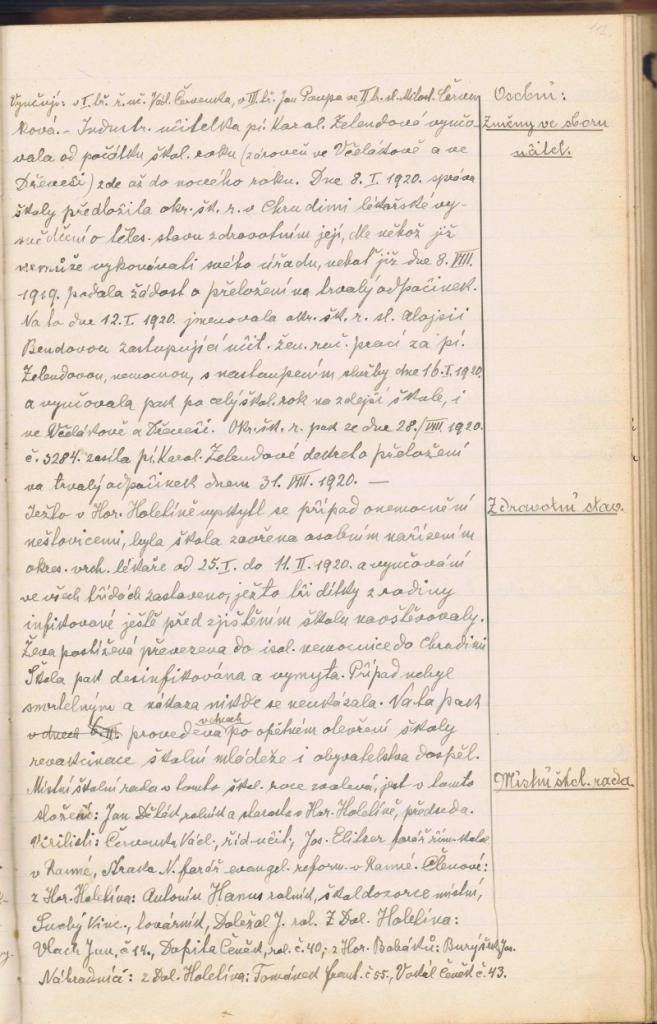 Osobní:
Změny ve sboru
učitel.
Vyučují: v I. tř. ř. uč. Václ. Červenka, v III. tř. Jan Poupa ve II. tř. sl. Milosl. Červen
ková. – Industr. učitelka pí. Karol. Zelendová vyučo-
vala od počátku škol. roku (zároveň ve Včelákově a ve
Dřeveši) zde až do nového roku. Dne 8. I. 1920. správa
školy předložila okr. šk. r. v Chrudimi lékařské vy-
svědčení o těles. stavu zdravotním její, dle něhož již
nemůže vykonávati svého úřadu, neboť již dne 8. VIII.
1919. podala žádost o přeložení na trvalý odpočinek.
Na to dne 12. I. 1920. jmenovala okr. šk. r. sl. Aloisii
Bendovou zastupující učit. žen. ruč. prací za pí.
Zelendovou, nemocnou, s nastoupením služby dne 16. I. 1920.
a vyučovala pak po celý škol. rok na zdejší škole, i
ve Včelákově a Dřeveši. Okr. šk. r. pak ze dne 28./VIII. 1920.
č. 3284. zasílá pí. Karol. Zelendové dekret o přeložení
na trvalý odpočinek dnem 31. VIII. 1920. —
Zdravotní stav.
Ježto v Hor. Holetíně vyskytl se případ onemocnění
neštovicemi, byla škola zavřena osobním nařízením
okres. vrch. lékaře od 25. I. do 11. II. 1920. a vyučování
ve všech třídách zastaveno, ježto tři dítky z rodiny
infikované ještě před zjištěním školu navštěvovaly.
Žena postižená převezena do isol. nemocnice do Chrudimi
Škola pak desinfikována a vymyta. Případ nebyl
smrtelným a nákaza nikde se neukázala. Na to pak
v dnech 6. II. provedena v dnech po opětném otevření školy
revakcinace školní mládeže i obyvatelstva dospěl.
Místní škol. rada
Místní školní rada v tomto škol. roce zasedá, jest v tomto
složení: Jan Dělák, rolník a starosta v Hor. Holetíně, předseda.
Virilisti: Červenka Václ., říd. učit., Jos. Elitzer farář řím.-katol.
v Ranné, N. farář evangel. reform. v Ranné. Členové:
z Hor. Holetína: Antonín Hanus rolník, škol. dozorce místní,
Suchý Vinc., továrník, Doležal J. rol. Z Dol. Holetína:
Vlach Jan, č 14., Dopita Čeněk, rol. č. 40; z Hor. Babáků: Jos.
Náhradníci: z Dol. Holetína: Tománek Frant. č 55., Vodál Čeněk č. 43.